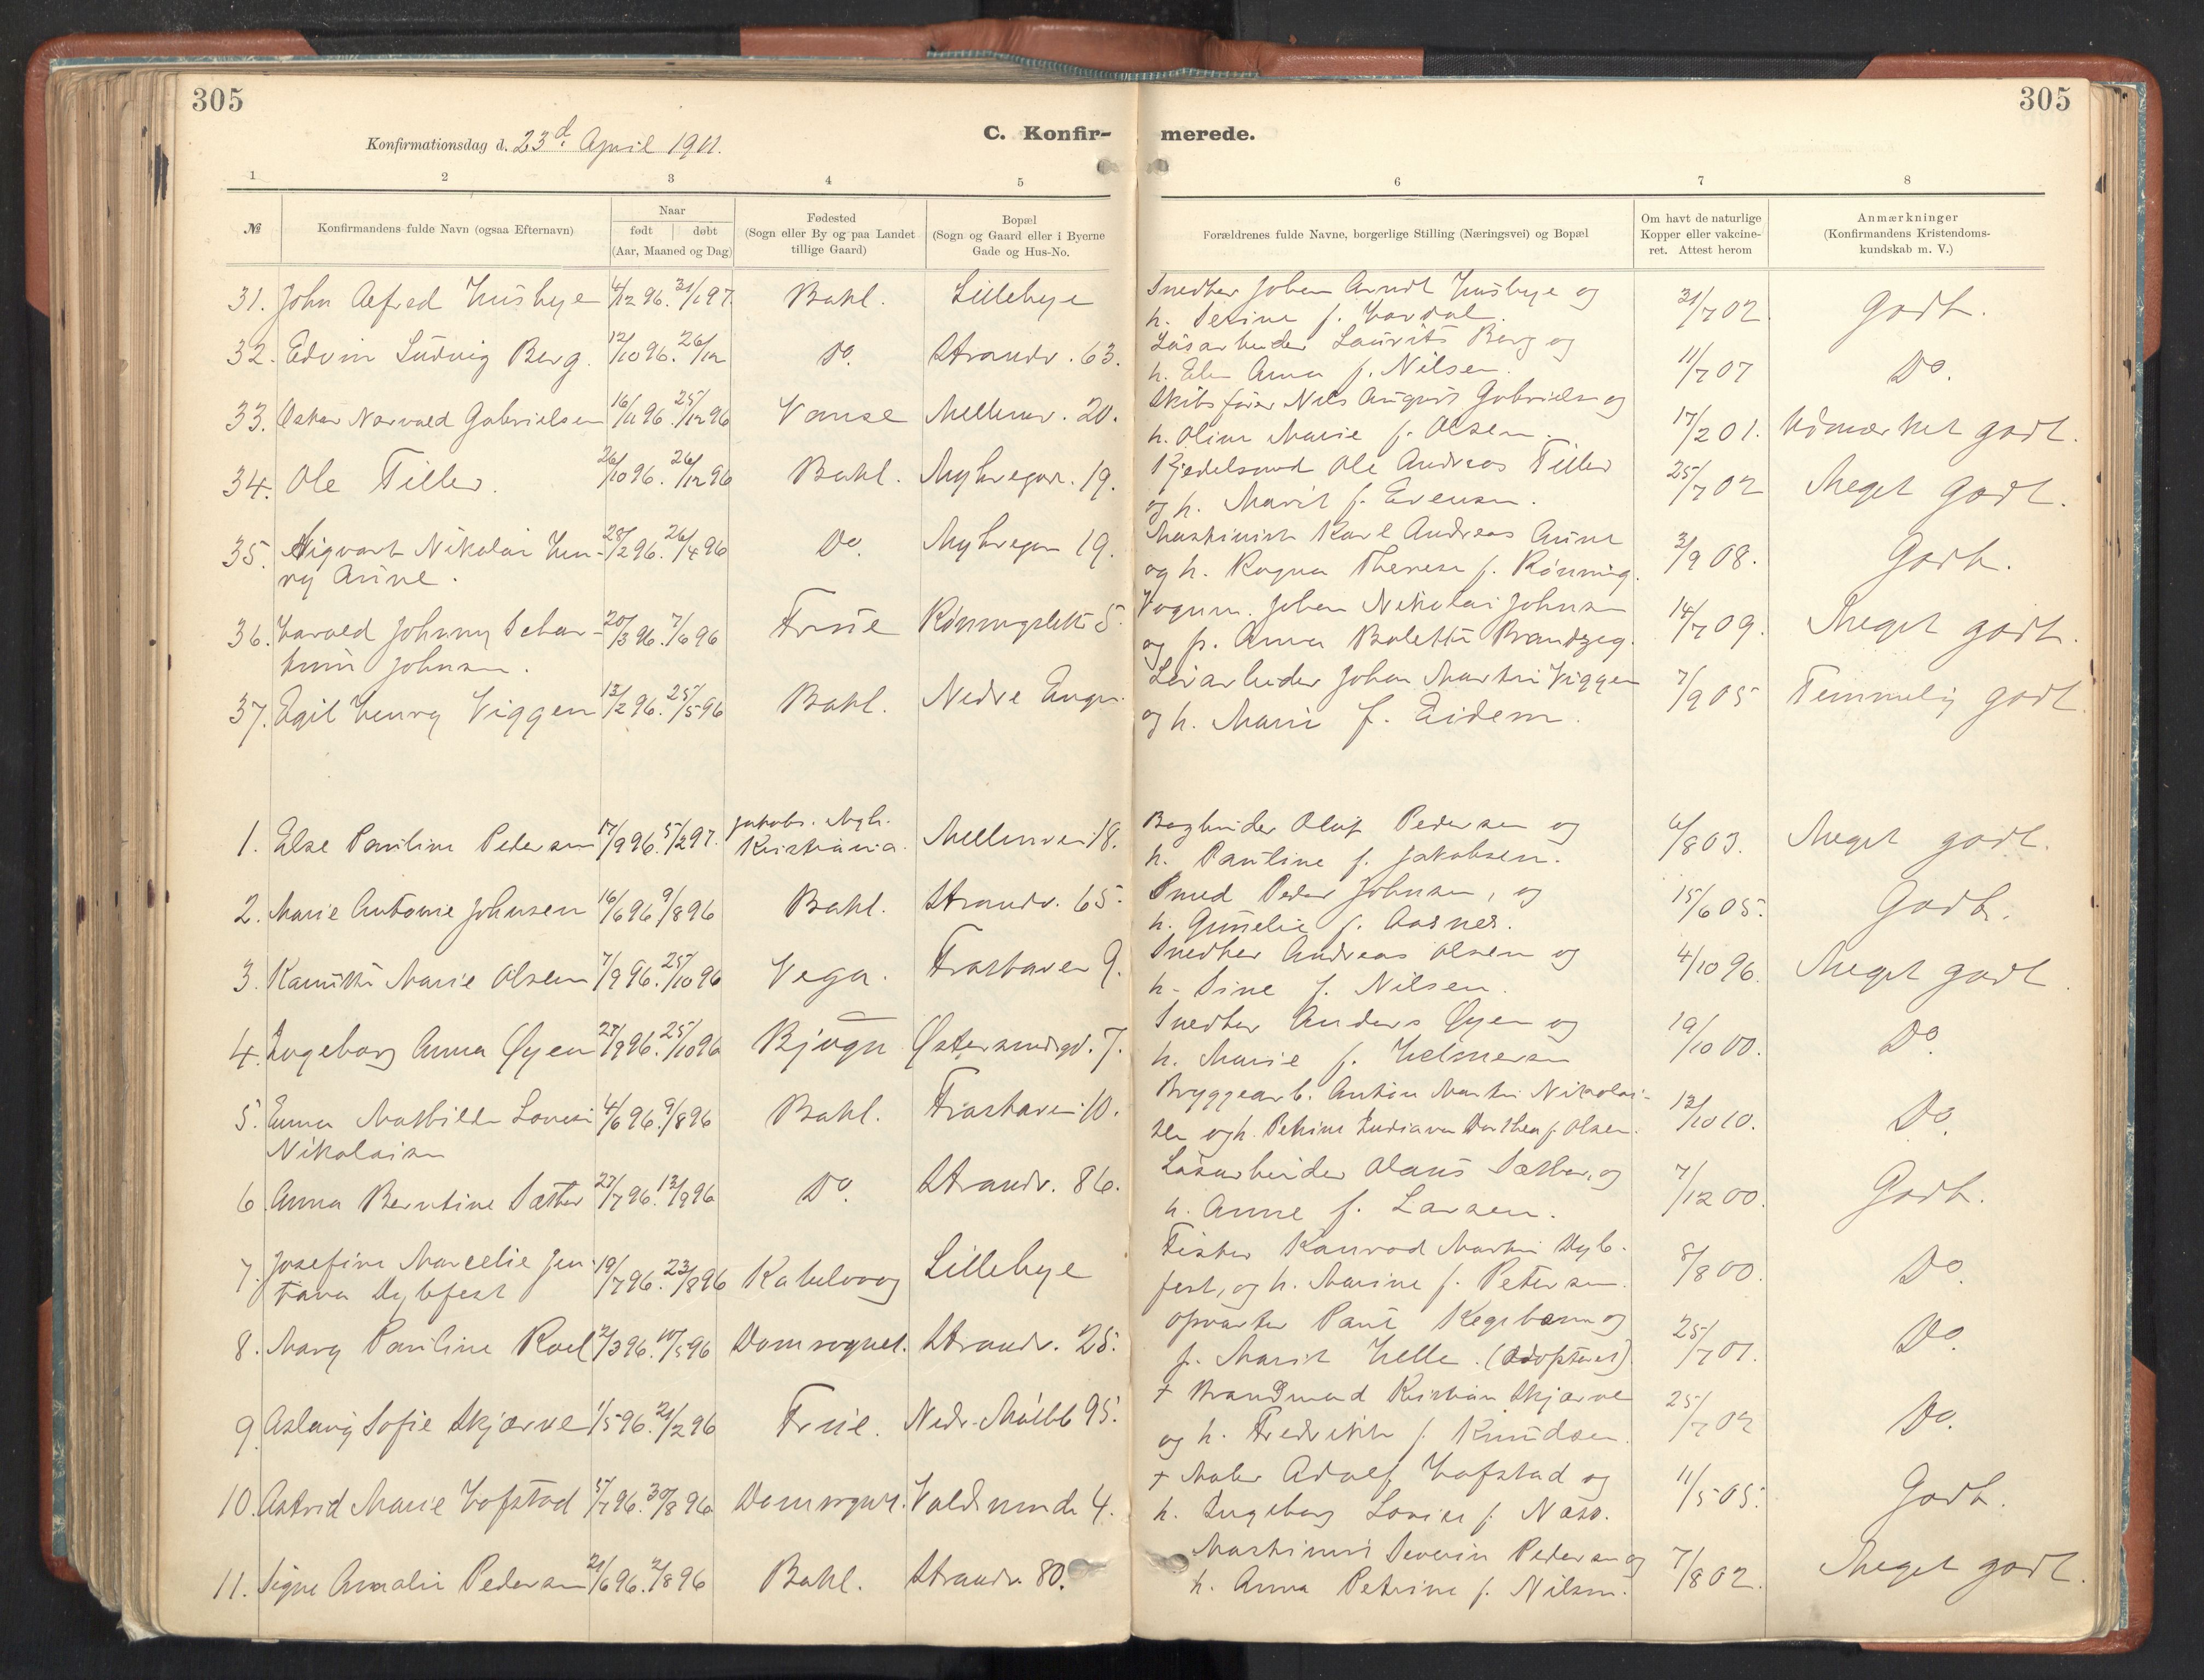 305
305
Konfirmationsdag d. 23d. April 1911.
C. Konfir-
merede.
1 2 3 4 5 6 7 8
№
Konfirmandens fulde Navn (ogsaa Efternavn)
Naar
født døbt
(Aar, Maaned og Dag)
Fødested
(Sogn eller By og paa Landet
tillige Gaard)
Bopæl
(Sogn og Gaard eller i Byerne
Gade og Hus-No.
Forældrenes fulde Navne, borgerlige Stilling (Næringsvei) og Bopæl
Om havt de naturlige
Kopper eller vakcine-
ret. Attest herom
Anmærkninger
(Konfirmandens Kristendoms-
kundskab m. V.)
31. John Alfred Husbye 4/12 96. 31/1 97. Bakl. Lillebye Snedker Johan Arndt Husbye og 31/7 02. Godt.
h. Petrine f.
32. Edvin Ludvig Berg. 12/10 96. 26/12 Do. Strandv. 63. Løsarbeider Laurits Berg og 11/7 07 Do.
h. Anna f. Nilsen.
33. Oskar Norvald Gabrielsen 16/11 96. 25/12 96 Vanse Mellemv. 20. Skibsfører Nils August Gabrielsen og 17/2 01. Udmærket godt.
h. Oline Marie f. Olsen.
34. Ole Tiller. 26/10 96. 26/12 96 Bakl. Nyhregar. 19. Kjedelsmed Ole Andreas Tiller 25/7 02 Meget godt.
og h. Marit f. Evensen.
35. Sigvart Nikolai Hen- 28/2 96. 26/4 96 Do. 19. Maskinist Karl Andreas Aune 3/9 08. Godt.
ry Aune.
og h. Ragna Therese f. Rønning.
36. Harald Johnny 20/3 96. 7/6 96 Frue Rønningsletta 5. Vognm. Johan Nikolai Johnsen 14/7 09. Meget godt.
Johnsen.
og f. Anna Bolette Brandzæg.
37. Egil Henry Viggen 13/2 96. 25/5 96 Bakl. Nedre Enge. Løsarbeider Johan Martin Viggen 7/9 05 Temmelig godt.
og h. Marie f. Eidem.
1. Else Pauline Pedersen 17/9 96. 5/2 97. Jakobs.
Kristiania. Mellemvei 18. Bogbinder Oluf Pedersen og 6/8 03. Meget godt.
h. Pauline f. Jakobsen.
2. Marie Antonie Johnsen 16/6 96 9/8 96 Bakl. Strandv. 65. Smed Peder Johnsen, og 15/6 05. Godt.
h. Gunelie f. Aasnes.
3. Marie Olsen 7/9 96. 25/10 96 Vega. Frostaven 9. Snedker Andreas Olsen og 4/10 96. Meget godt.
h. Sine f. Nilsen.
4. Ingeborg Anna Øyen 27/9 96. 25/10 96 Bjugn Østersundsgd. 7. Snedker Anders Øyen og 19/10 00. Do.
h. Marie f. Helmersen
5. Emma Mathilde Lovise 4/6 96. 9/8 96 Bakl. Frostaven 10. Bryggearb. Anton Martin Nikolai- 12/10 10. Do.
Nikolaisen
sen og h. Petrine Indiana Dorthea f. Olsen.
6. Anna Berntine Sæther 27/7 96. 13/9 96 Do. Strandv. 86. Løsarbeider Olaus Sæther, og 7/12 00. Godt.
h. Anne f. Larsen.
7. Josefine Marcelie Jen- 19/7 96. 23/8 96 Kabelvaag Lillebye Fisker Konrad Martin Dyb- 8/8 00. Do.
tava Dybfest
fest, og h. Marine f. Petersen.
8. Mary Pauline Roel 2/3 96. 10/5 96 Domsognet. Strandv. 25. Opvarter Paul og 25/7 01. Do.
f. Marit Helle. (Adopteret)
9. Aslaug Sofie Skjærve 1/5 96. 21/2 96 Frue. Nedr. Møllb 95. + Brandmand Kristian Skjærve 25/7 02 Do.
og h. Fredrikke f. Knudsen.
10. Astrid Marie Hofstad 5/7 96. 30/8 96 Domsognet. Voldsminde 4. + Maler Adolf Hofstad og 11/5 05. Godt.
h. Ingeborg Lovise f. Næss.
11. Signe Amalie Pedersen 21/6 96. 2/8 96 Bakl. Strandv. 80. Maskinist Severin Pedersen og 7/8 02. Meget godt.
h. Anna Petrine f. Nilsen.